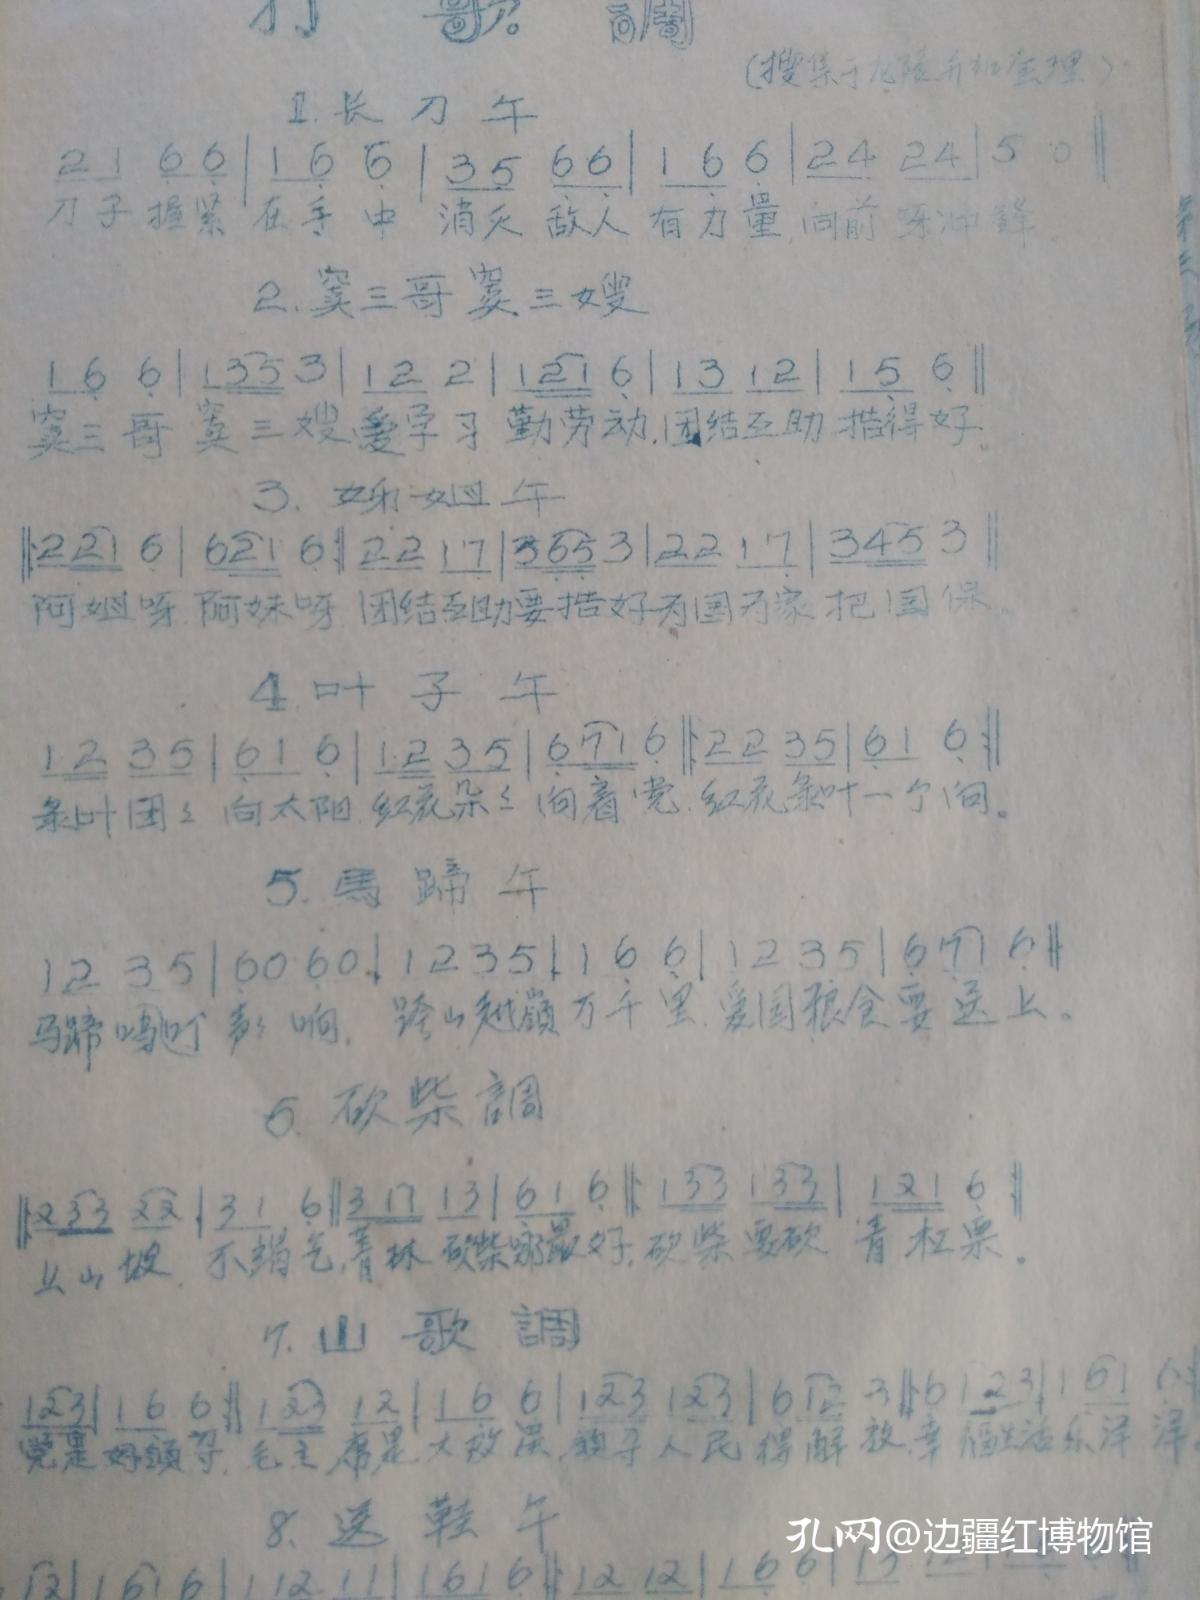 打歌調
(搜集于龙陵 整理)
1.长刀午
21 66 | 16 6 | 35 66 | 16 6 | 24 24 | 5 0 ‖
刀子握紧在手中 消灭敌人有力量,向前呀冲锋。
2.窦三哥窦三嫂
16 6 | 135 3 | 12 2 | 121 6 | 13 12 | 15 6 ‖
窦三哥窦三嫂,爱学习勤劳动,团结互助措得好。
3.姊姐午
‖:221 6 | 621 6:‖ 22 17 | 365 3 | 22 17 | 345 3 ‖
阿姐呀 阿妹呀 团结互助要措好为国为家把国保。
4.叶子午
1·2 35 | 61 6 | 1·2 35 | 671 6 ‖: 22 35 | 61 6 :‖
条叶团々向太阳 红花朵々向着党,红花条叶一个向。
5.馬蹄午
12 35 | 60 60 | 12 35 | 16 6 | 12 35 | 671 6 ‖
马蹄 响,跨山越嶺万千里,爱国粮食要送上。
6.砍柴調
‖:233 22 | 31 6 :‖ 317 13 | 61 6 ‖: 133 133 | 121 6 :‖
上山坡,不 气,青林砍柴 好,砍柴要砍青杠栗。
7.山歌調
123 | 16 6 ‖ 123 12 | 16 6 | 123 123 | 612 3 ‖ 6 123 | 161 6
党是好領导,毛主席是大救星,領导人民得解放,幸福生活乐洋洋。
8.送鞋午
12 | 161 6 | 112 11 | 161 6 ‖ 12 12 | 16 6 | 13 12
孔网@边疆红博物馆